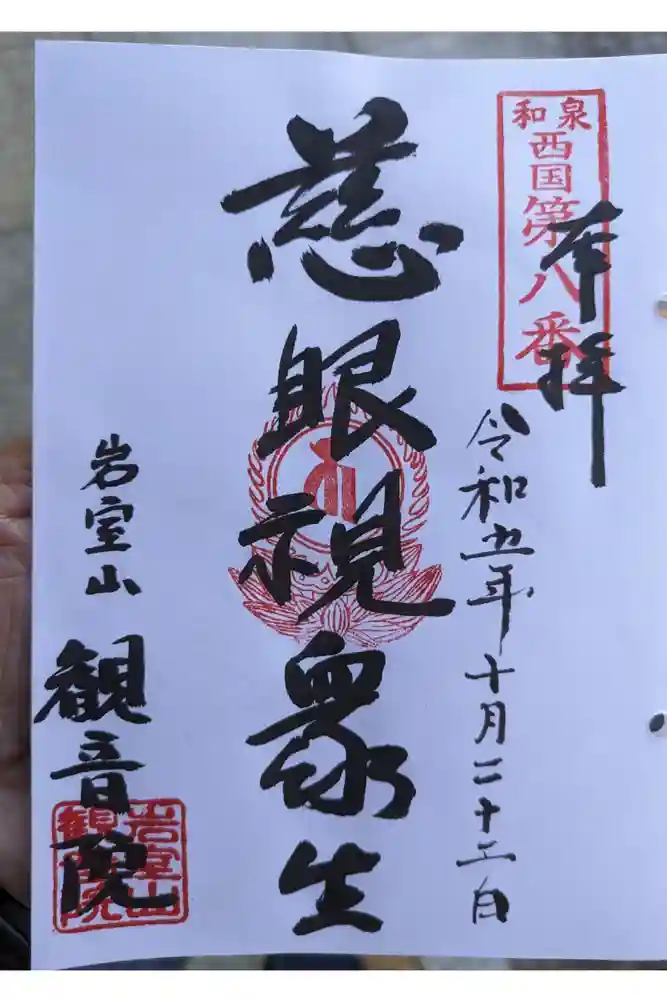 和泉
西国第八番
奉拝
令和五年十月二十二日
慈眼視衆生
岩室山
観音院
岩室山
観音院